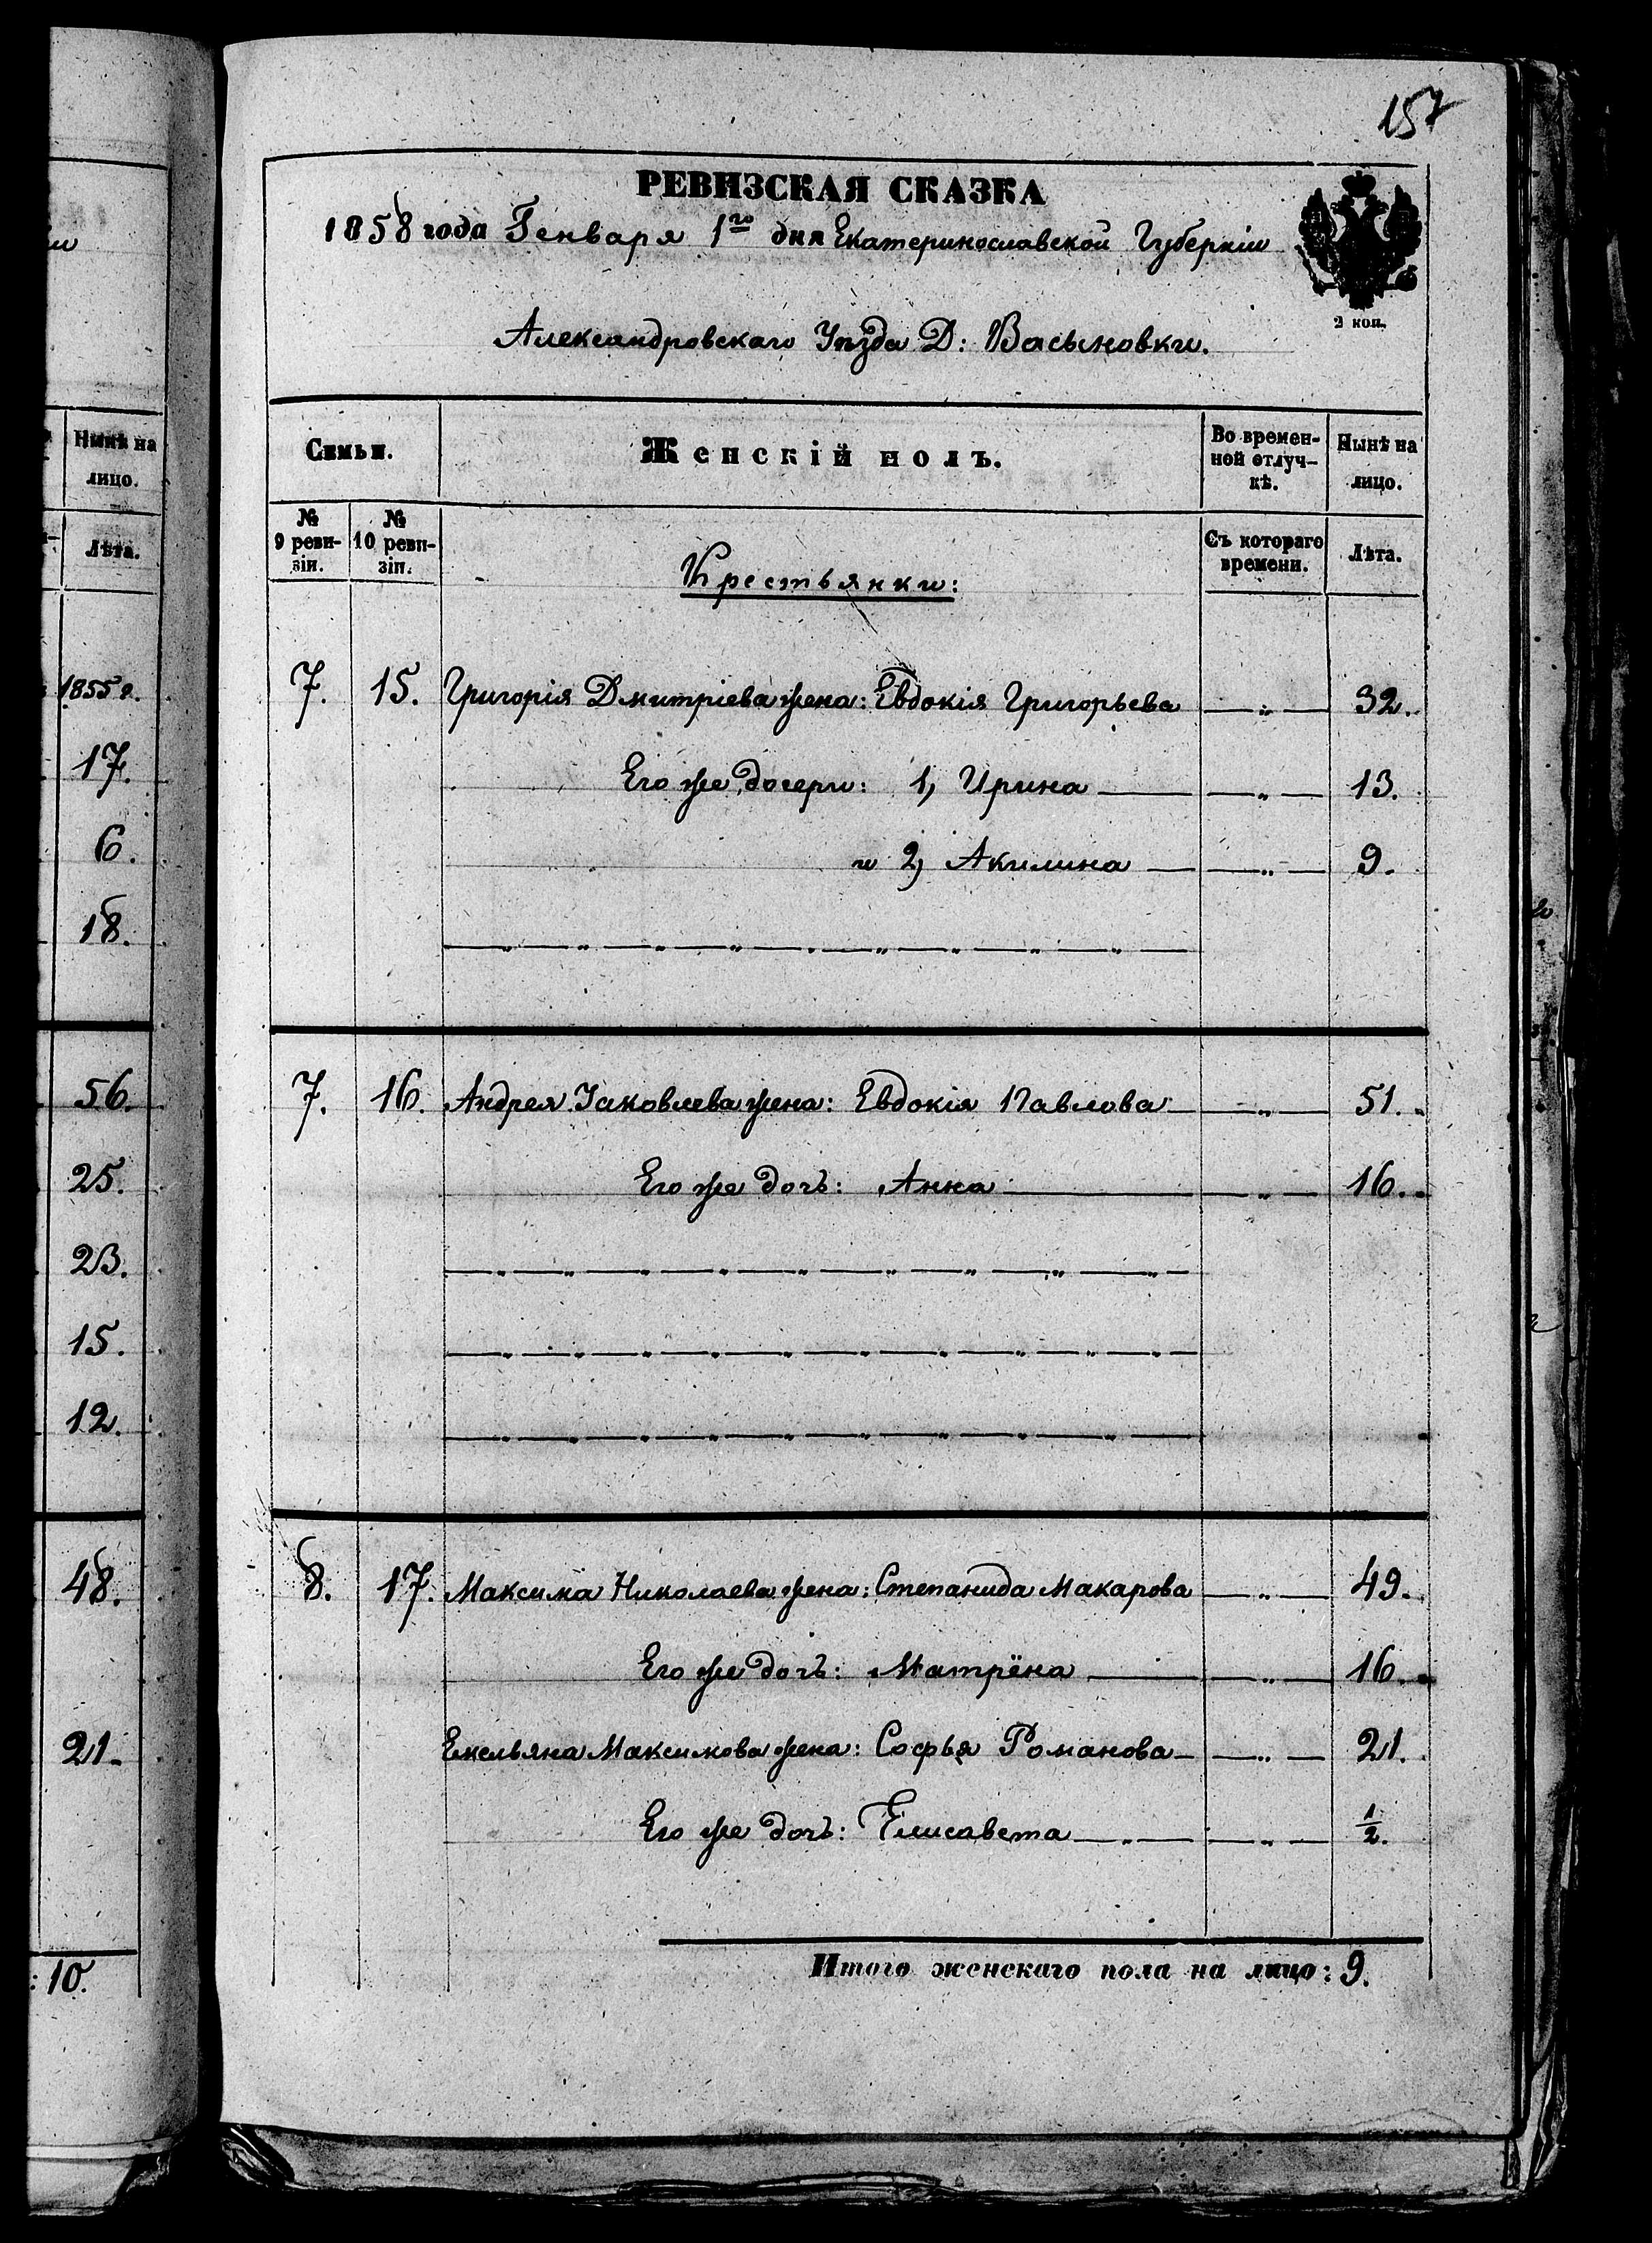 157
РЕВИЗСКАЯ СКАЗКА
1858 года Генваря 1го дня Екатеринославской Губерніи
2 коп.
Александровскаго Уѣзда Д: Васыновки.
Нынѣ на
лицо.
Лѣта.
1855 г.
17.
6.
18.
56.
25.
23.
15.
12.
48.
21.
: 10.
Семьи.
Женскій полъ.
Во времен-
ной отлуч-
кѣ.
Нынѣ на
лицо.
№
9 реви-
зіи.
№
10 реви-
зіи.
Съ котораго
времени.
Лѣта.
Крестьянки:
7. 15. Григорія Дмитріева жена: Евдокія Григорьева — „ — 32.
Его же дочери: 1, Ирина — „ — 13.
и 2, Акилина — „ — 9.
7. 16. Андрея Іаковлева жена: Евдокія Павлова — „ — 51.
Его же дочь: Анна — „ — 16.
8. 17. Максима Николаева жена: Степанида Макарова — „ — 49.
Его же дочь: Матрёна — „ — 16.
Емельяна Максимова жена: Софья Романова — „ — 21.
Его же дочь: Елисавета — „ — „ — 1/2.
Итого женскаго пола на лицо: 9.